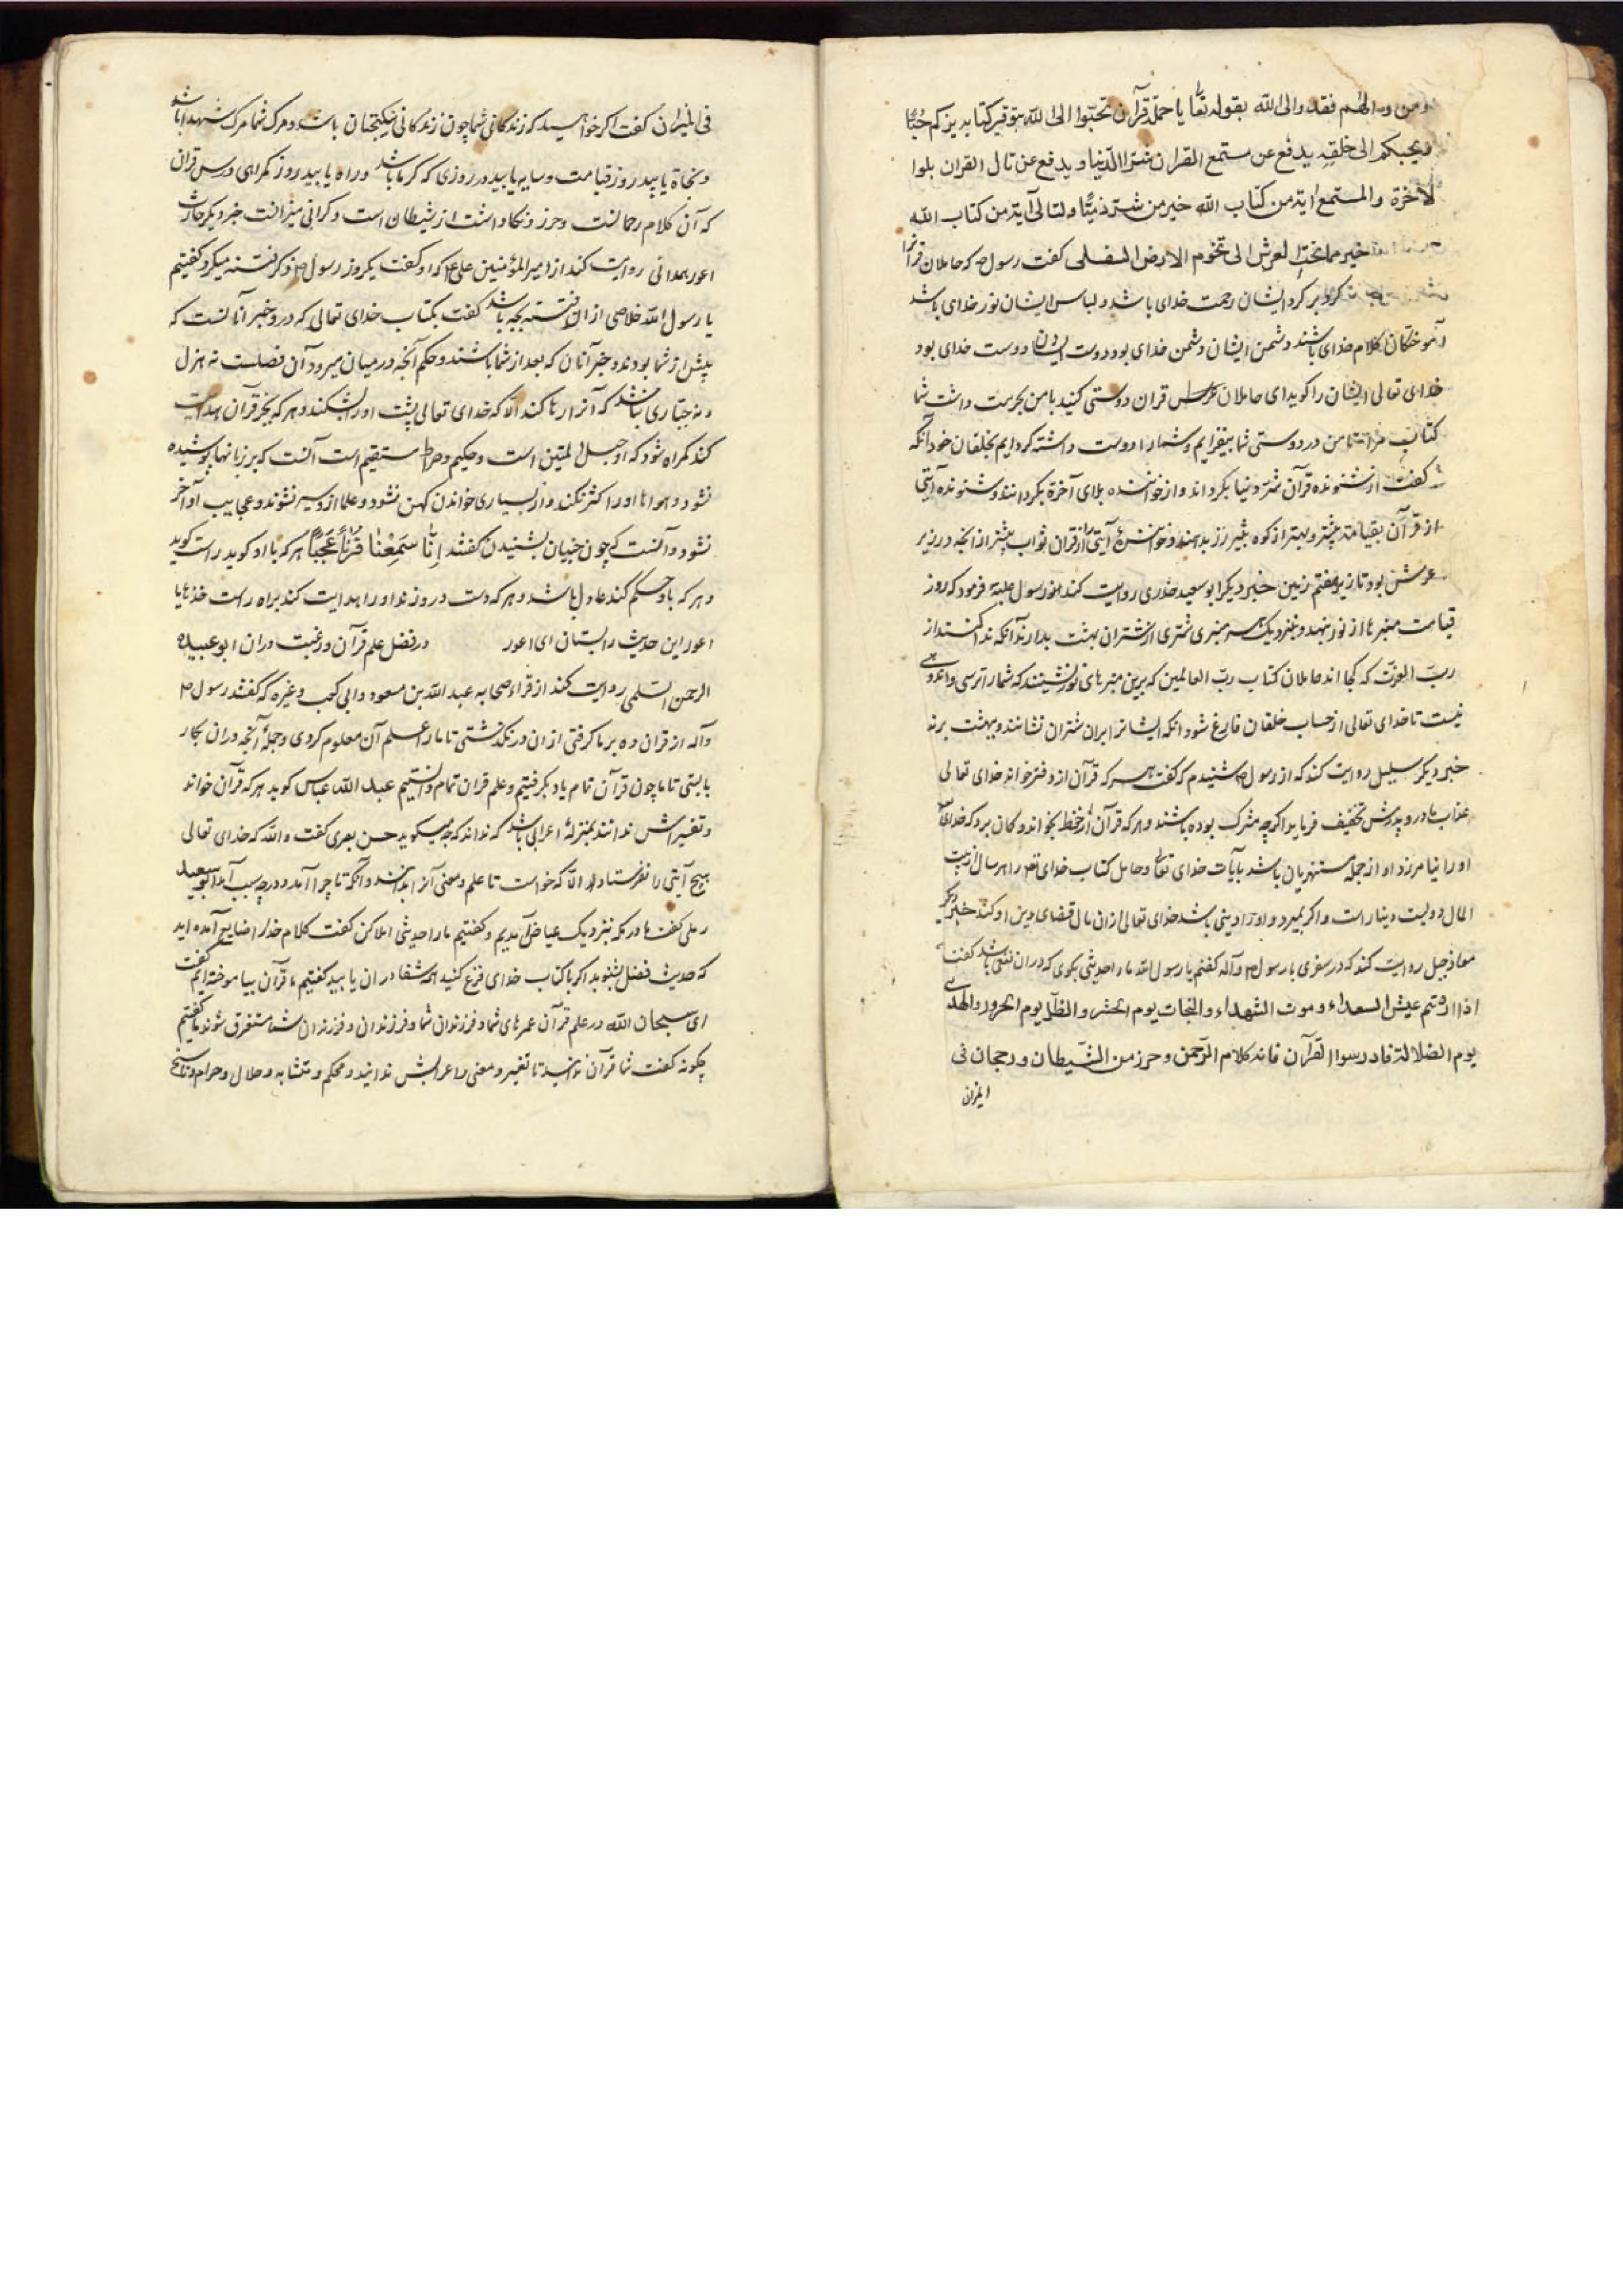 ومن والاهم فقد والی الله بقوله تعا یا حملة قرآن تحببوا الی الله بتوقیر کتابه یزدکم حبا
ویحببکم الی خلقه یدفع عن مستمع القرآن شر الدنیا و یدفع عن تال القرآن بلوا
لآخرة والمستمع آیة من کتاب الله خیر من ولتالی آیة من کتاب الله
خیر مما تحت العرش الی تخوم الارض السفلی گفت رسول ص که حاملان قرآنرا
گرد بر گرد ایشان رحمت خدای باشد و لباس ایشان نور خدای باشد
آموختگان کلام خدای باشند دشمن ایشان دشمن خدای بود دوست ایشان دوست خدای بود
خدای تعالی ایشان را گوید ای حاملان قران دوستی کنید با من بحرمت داشت شما
کتاب مرا تا من در دوستی شما بیفزایم و شما را دوست داشته گردانم بخلقان خود آنگه
گفت از شنونده قرآن شر دنیا بگرداند و از خواننده بلای آخرة بگردانند و شنونده آیتی
از قرآن بهتر از کوه زر بدهند و خواننده آیتی از قران ثواب بیشتر از آنچه در زیر
عرش بود تا زیر هفتم زمین خبر دیگر ابو سعید خدری روایت کند از رسول علیه فرمود که روز
قیامت منبرها از نور بنهند و بنزدیک هر منبری شتری از شتران بهشت بدارند آنگه ندا کنند از
رب العزت که کجااند حاملان کتاب رب العالمین که برین منبرهای نور نشینند که شما را ترسی و اندوهی
نیست تا خدای تعالی از حساب خلقان فارغ شود آنگه ایشانرا برین شتران نشانند و ببهشت برند
خبر دیگر سلیل روایت کند که از رسول ص شنیدم که گفت هر که قرآن از دفتر خواند خدای تعالی
عذاب مادر و پدرش تخفیف فرماید اگر چه مشرک بوده باشند و هر که قرآن از حفظ بخواند و گمان برد که خدای
او را نیامرزد او از جمله مستهزیان باشد بآیات خدای تعا و حامل کتاب خدای را هر سال از بیت
المال دویست دینار است و اگر بمیرد و او را دینی باشد خدای تعالی از ان مال قضای دین او کند خبر دیگر
معاذ جبل روایت کند که در سفری با رسول ص و آله گفتم یا رسول الله ما را حدیثی بگوی که در ان نفعی باشد گفت
اذا اردتم عیش السعداء و موت الشهداء والنجات یوم الحشر والظل یوم الحرور والهدی
یوم الضلالة فادرسوا القرآن فانه کلام الرحمن و حرز من الشیطان و رجحان فی
المیزان
فی المیزان گفت اگر خواهید که زندگانی شما چون زندگانی نیکبختان باشد و مرگ شما مرگ شهدا باشد
ونجاة یابید روز قیامت و سایه یابید در روزی که گرما باشد و راه یابید روز گمراهی درس قران
که آن کلام رحمانست و حرز و نگاداشت از شیطان است و گرانی میزانست خبر دیگر حارث
اعور همدانی روایت کند از امیر المؤمنین علی ع که او گفت یکروز رسول ص ذکر فتنه میکرد گفتیم
یا رسول الله خلاصی از ان فتنه بچه باشد گفت بکتاب خدای تعالی که درو خبر آنانست که
پیش از شما بودند و خبر آنان که بعد از شما باشند و حکم آنچه در میان میرود آن فصلست نه هزل
هر جباری نباشد که آنرا رها کند الا که خدای تعالی پشت او را بشکند و هر که بجز قرآن هدایت
کند گمراه شود که او حبل المتین است و حکیم و صراط مستقیم است آنست که بر زبانها پوشیده
نشود و هوانا او را نکند و از بسیاری خواندن کهن نشود و علما ازو سیر نشوند و عجایب او آخر
نشود و آنست که چون جنیان بشنیدن گفتند اِنّا سَمِعْنا قُرْآناً عَجَباً هر که با او گوید راست گوید
و هر که باو حکم کند عادل باشد و هر که دست در وزند او را هدایت کند براه راست خذها یا
اعور این حدیث را بستان ای اعور در فضل علم قرآن و رغبت دران ابو عبید
الرحمن السلمی روایت کند از قراء صحابه عبد الله بن مسعود و ابی کعب و غیره که گفتند رسول ص
وآله از قران ده بر ما گرفتی از ان در نگذشتی تا ما را علم آن معلوم کردی و جمله آنچه دران بکار
بایستی تا ما چون قرآن تمام یاد بگرفتیم و علم قران تمام دانستیم عبد الله عباس گوید هر که قرآن خواند
و تفسیرش نداند بمنزله اعرابی باشد که نداند که چه میگوید حسن بصری گفت والله که خدای تعالی
هیچ آیتی را نفرستاد الا که خواست تا علم و معنی آنرا بدانند و آنگه تا چرا آمد و در چه سبب آمد ابو سعید
رملی گفت ما در مکه بنزدیک عیاض آمدیم و گفتیم ما را حدیثی املا کن گفت کلام خدا را ضایع آمده اید
که حدیث فضل بشنوید اگر با کتاب خدای فزع کنید همه شفا در ان یابید گفتیم ما قرآن بیاموخته ایم گفت
ای سبحان الله در علم قرآن عمرهای شما و فرزندان شما و فرزندان فرزندان شما مستغرق شوند گفتیم
چگونه گفت شما قرآن ندانید تا تفسیر و معنی و اعرابش ندانید و محکم و متشابه و حلال و حرام و ناسخ